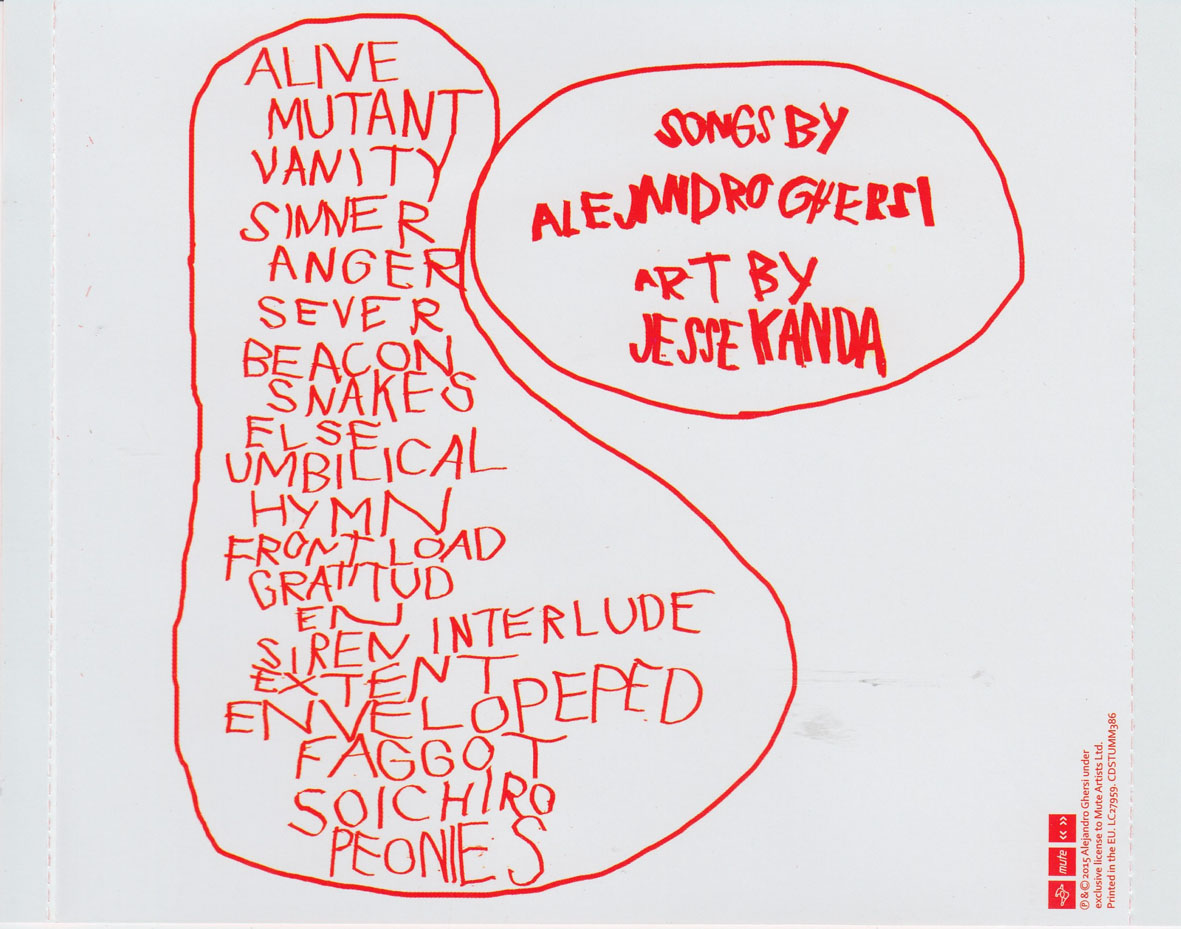 ALIVE
MUTANT
VANITY
SINNER
ANGER
SEVER
BEACON
SNAKES
ELSE
UMBILICAL
HYMN
FRONT LOAD
GRATITUD
EN
SIREN INTERLUDE
EXTENT
ENVELOPEPED
FAGGOT
SOICHIRO
PEONIES
SONGS BY
ALEJANDRO GHERSI
ART BY
JESSE KANDA
mute
℗ & © 2015 Alejandro Ghersi under
exclusive license to Mute Artists Ltd.
Printed in the EU. LC27959. CDSTUMM386